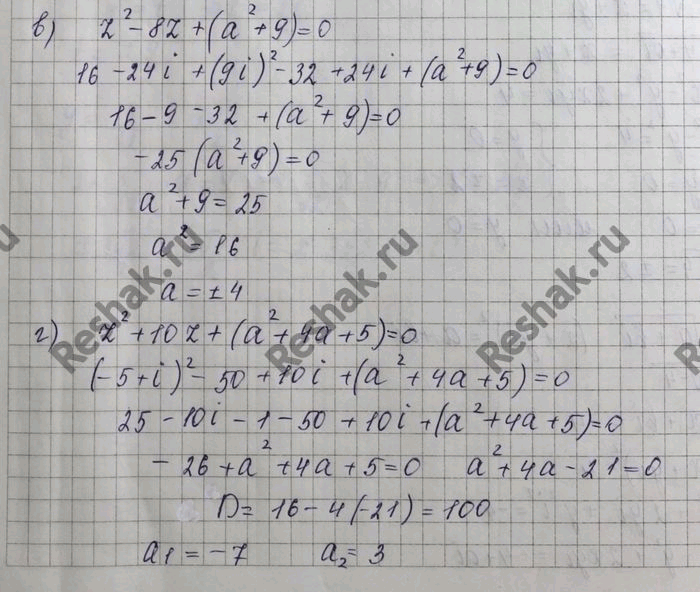 в) z² - 8z + (a² + 9) = 0
16 - 24i + (9i)² - 32 + 24i + (a² + 9) = 0
16 - 9 - 32 + (a² + 9) = 0
- 25 (a² + 9) = 0
a² + 9 = 25
a² = 16
a = ± 4
г) z² + 10z + (a² + 4a + 5) = 0
(-5 + i)² - 50 + 10i + (a² + 4a + 5) = 0
25 - 10i - 1 - 50 + 10i + (a² + 4a + 5) = 0
- 26 + a² + 4a + 5 = 0 a² + 4a - 21 = 0
D = 16 - 4(-21) = 100
a₁ = -7 a₂ = 3
Reshak.ru
Reshak.ru
Reshak.ru
Reshak.ru